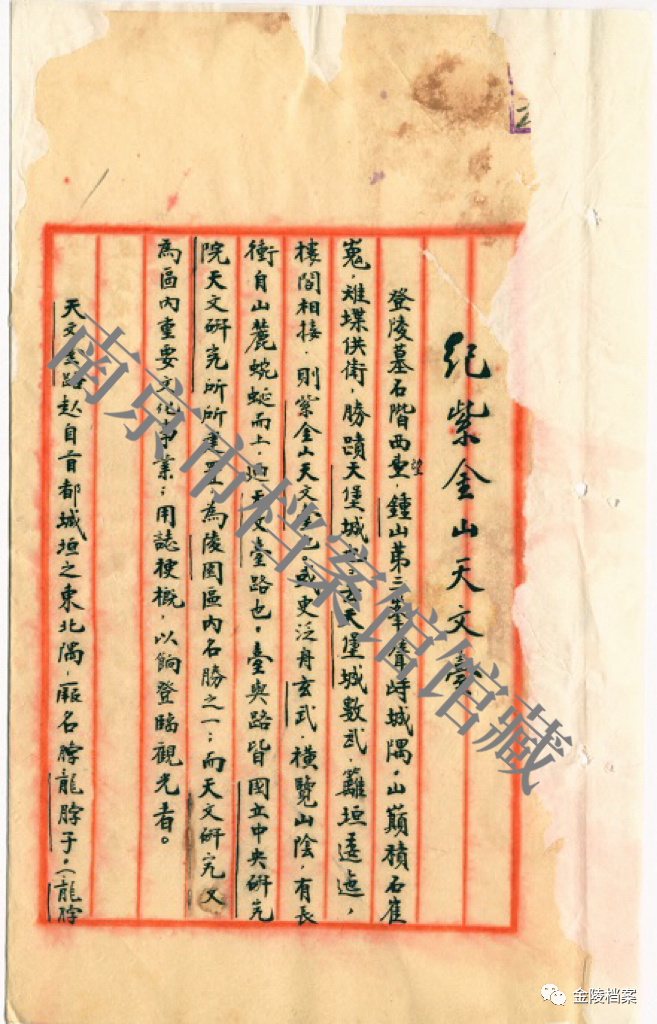 紀紫金山天文臺
登陵墓石階西望,鍾山第三峯聳峙城隅。山巔積石崔
嵬,雉堞供衛,勝蹟天堡城也。去天堡城數武,籬垣逶迤,
樓閣相接,則紫金山天文臺也。或更泛舟玄武,橫覽山陰,有長
衝自山麓蜿蜒而上,迺天文臺路也。臺與路皆國立中央研究
院天文研究所所建置,為陵園區內名勝之一;而天文研究又
為區內重要文化事業;用誌梗概,以餉登臨觀光者。
天文臺路起自首都城垣之東北隅,厥名脖龍脖子。(龍脖
南京市档案馆馆藏
金陵档案